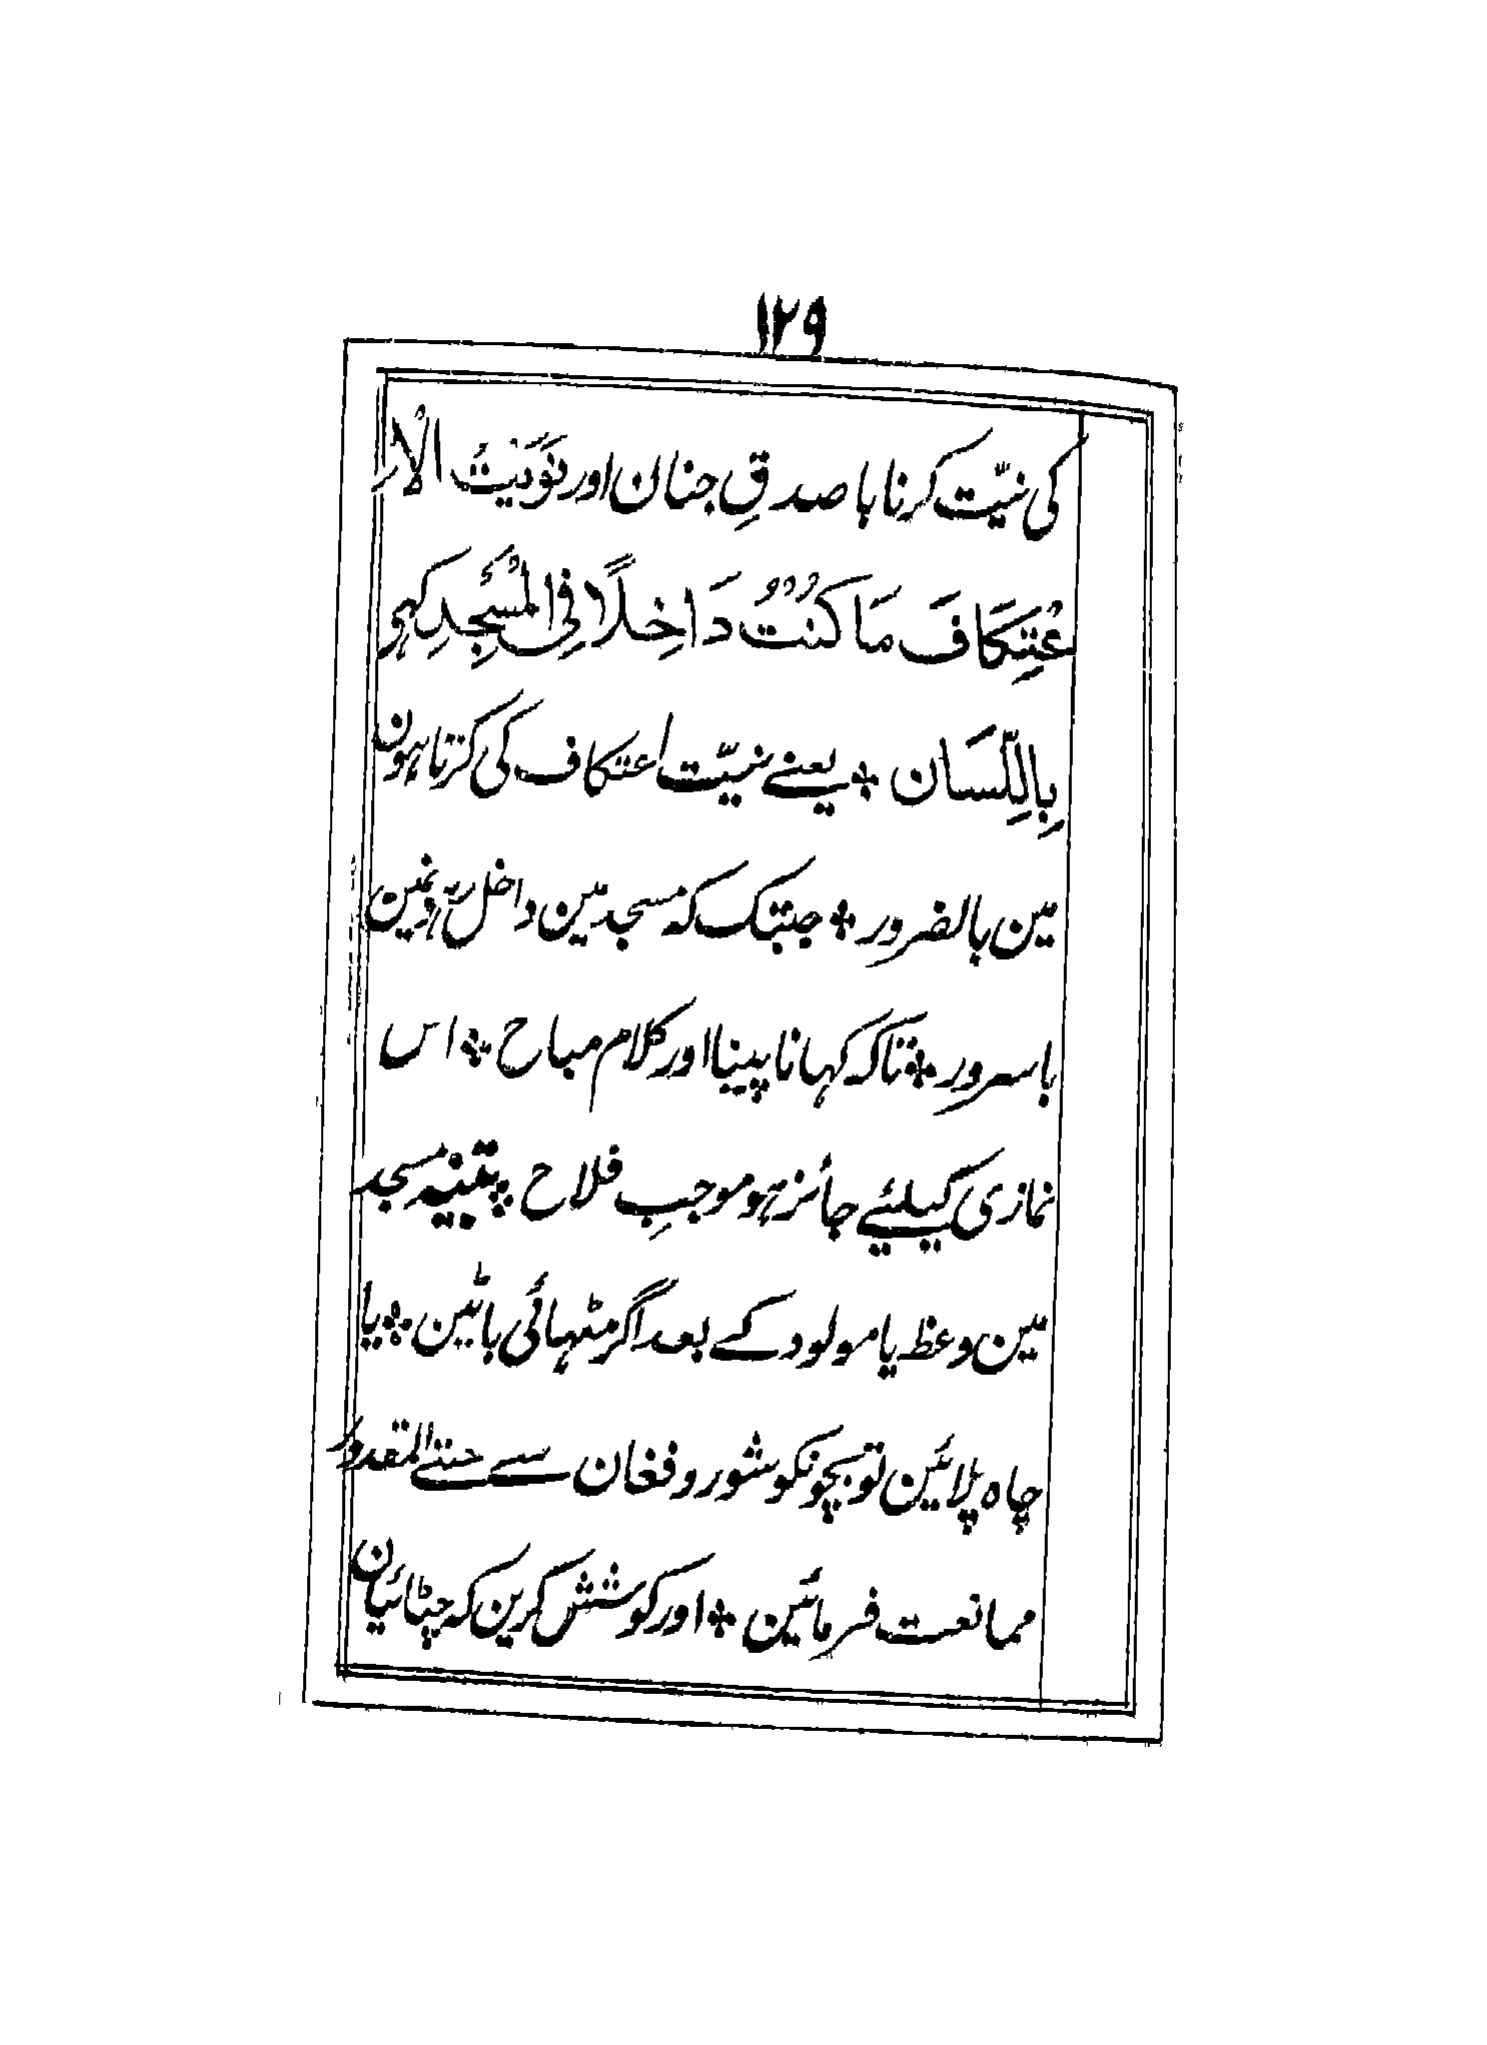 ١٢٩
کی نیّت کرنا با صدقِ جنان اور نَوَیْتُ الْاِ
عْتِکَافَ مَا کُنْتُ دَاخِلًا فِی الْمَسْجِدِ کہو
بِاللِّسَان ٭ یعنے نیّت اعتکاف کی کرتا ہون
مین بالضرور ٭ جبتک کہ مسجد مین داخل رہونمین
با سرور ٭ تاکہ کہانا پینا اور کلام مباح ٭ اس
نمازی کیلئے جائز ہو موجبِ فلاح ٭ تنبیہ مسجد
مین وعظ یا مولود کے بعد اگر مٹہائی باٹین ٭ یا
چاہ پلائین تو بچونکو شور و فغان سے حتے المقدور
ممانعت فرمائین ٭ اور کوشش کرین کہ چٹائیان